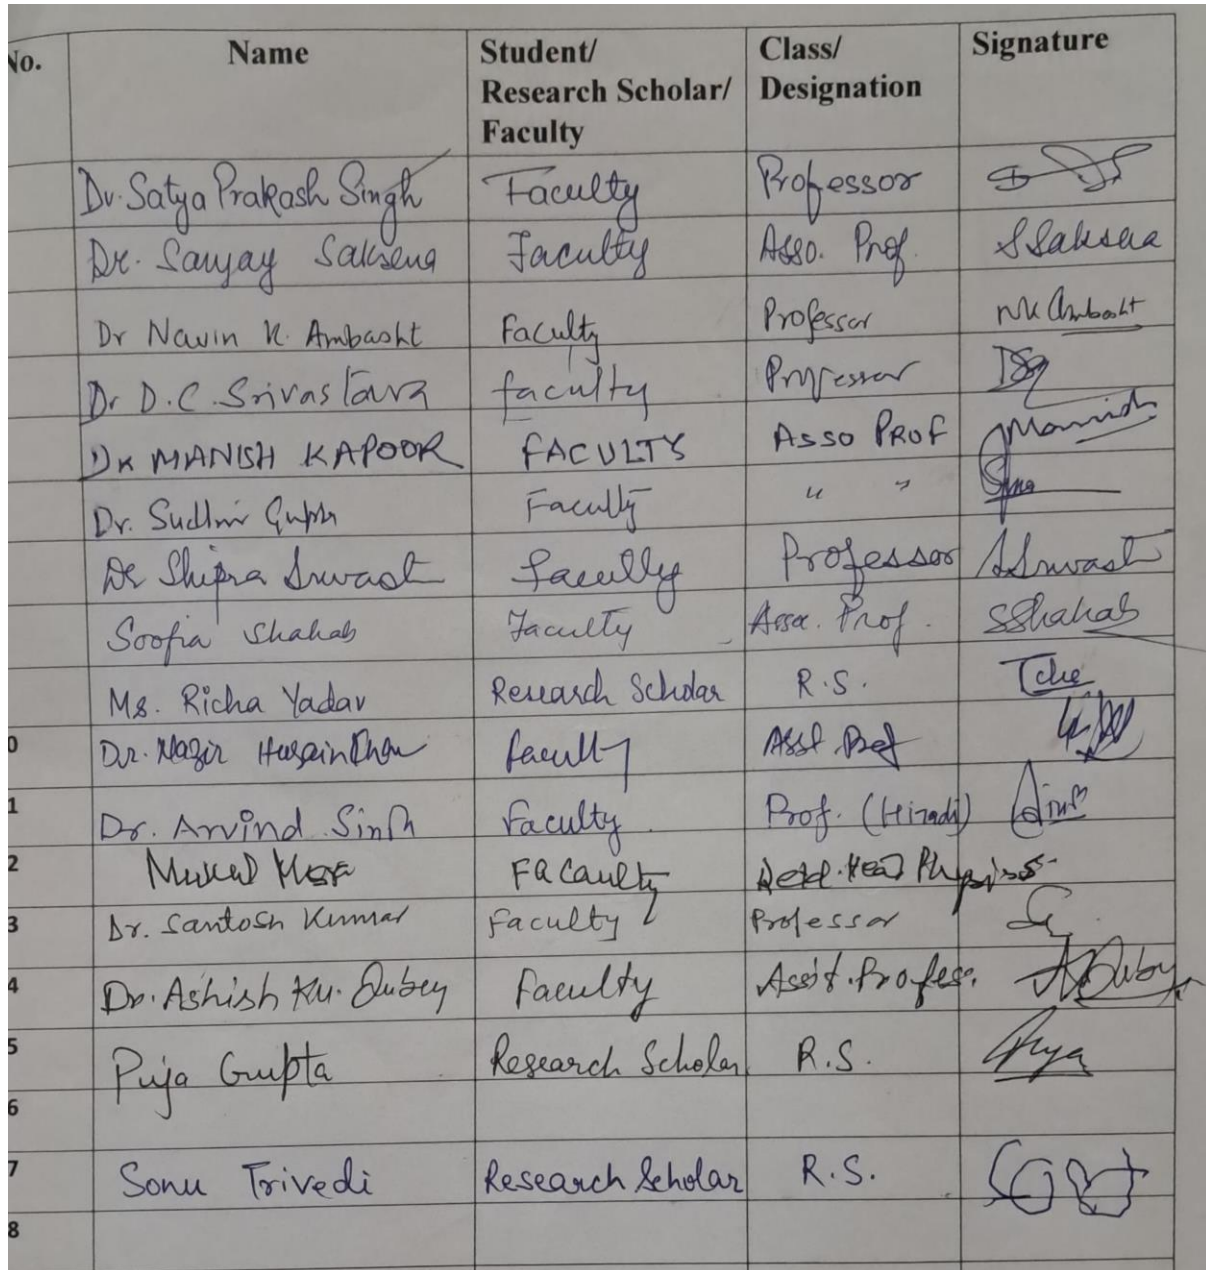 No. Name Student/ Research Scholar/ Faculty Class/ Designation Signature
Dr. Satya Prakash Singh Faculty Professor
Dr. Sanjay Saksena Faculty Asso. Prof. SSaksena
Dr Navin K. Ambasht Faculty Professor NK Ambasht
Dr D.C. Srivastava faculty Professor
DR MANISH KAPOOR FACULTY ASSO PROF Manish
Dr. Sudhir Gupta Faculty " "
Dr Shipra Srivast faculty Professor SSrivast
Soofia Shahab Faculty Asso. Prof. SShahab
Ms. Richa Yadav Research Scholar R.S.
0 Dr. Nazir Husain Khan faculty Asst. Prof
1 Dr. Arvind Singh Faculty Prof. (Hindi)
2 Head Physics
3 Dr. Santosh Kumar Faculty Professor
4 Dr. Ashish Ku. Dubey faculty Assit. Profes. ADubey
5 Puja Gupta Research Scholar R.S. Puja
6
7 Sonu Trivedi Research Scholar R.S.
8